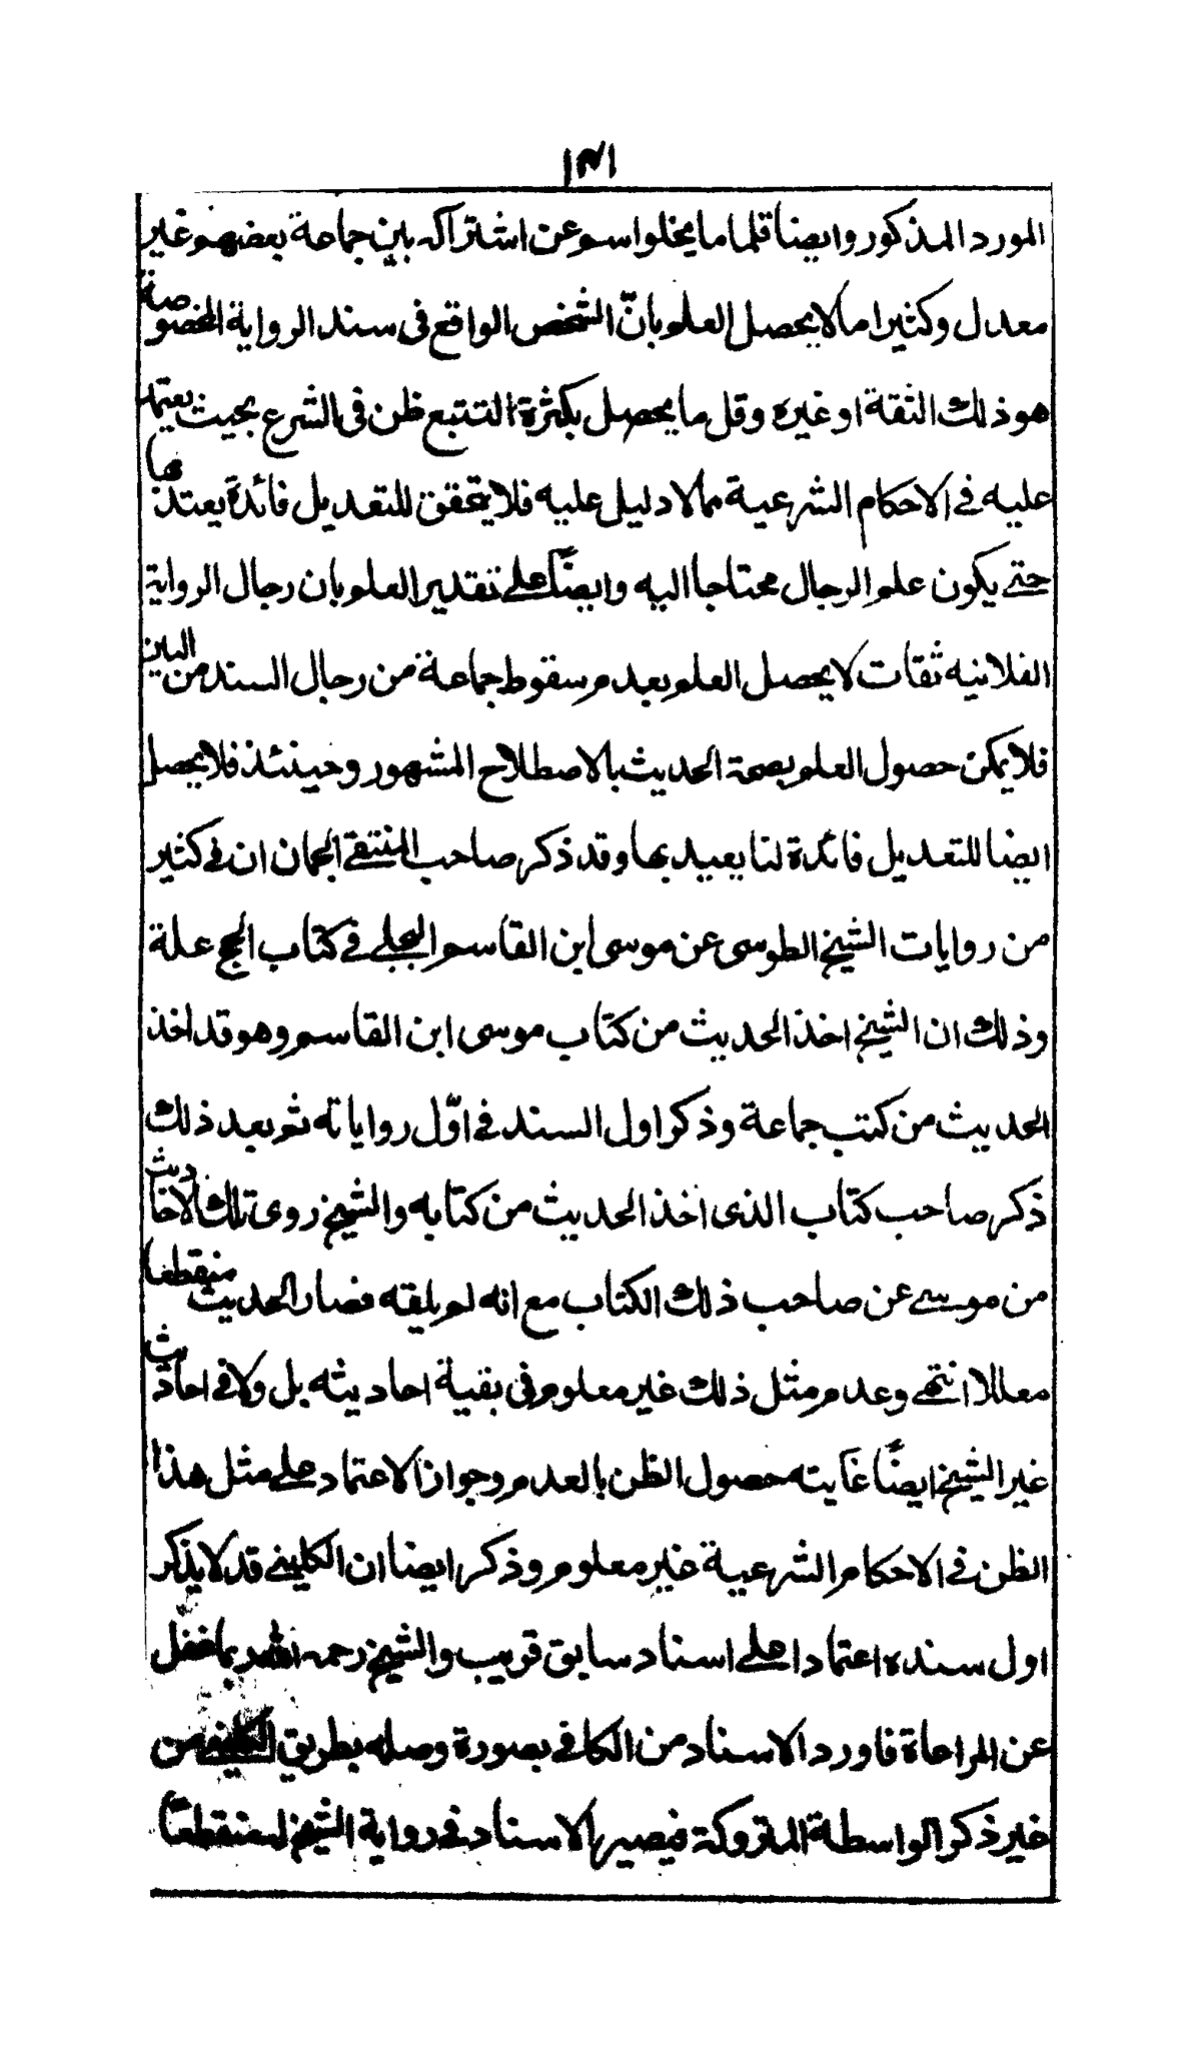 المورد المذكور وايضا قلما ما يخلوا اسم عن اشتراكه بين جماعة بعضهم غير
معدل وكثيرا ما لا يحصل العلم بانّ الشخص الواقع فى سند الرواية المخصوصة
هو ذلك الثقة او غيره وقل ما يحصل بكثرة التتبع ظن فى الشرع بحيث يعتمد
عليه فے الاحكام الشرعية مما لا دليل عليه فلا يتحقق للتعديل فائدة يعتد بها
حتے يكون علم الرجال محتاجا اليه وايضًا علے تقدير العلم بان رجال الرواية
الفلانيه ثقات لا يحصل العلم بعدم سقوط جماعة من رجال السند من البين
فلا يمكن حصول العلم بصحة الحديث بالاصطلاح المشهور وحينئذ فلا يحصل
ايضا للتعديل فائدة لنا يعبيد بها وقد ذكر صاحب المنتقے الجمان ان فے كثير
من روايات الشيخ الطوسى عن موسى ابن القاسم البجلے فے كتاب الحج علة
وذلك ان الشيخ اخذ الحديث من كتاب موسى ابن القاسم وهو قد اخذ
الحديث من كتب جماعة وذكر اول السند فے اوّل رواياته ثم بعد ذلك
ذكر صاحب كتاب الذى اخذ الحديث من كتابه والشيخ روى تلك الاحاديث
من موسے عن صاحب ذلك الكتاب مع انه لم يلقه فصار الحديث منقطعا
معللا انتهے وعدم مثل ذلك غير معلوم فى بقية احاديثه بل ولا فے احاديث
غير الشيخ ايضًا غايته حصول الظن بالعدم وجواز الاعتماد علے مثل هذا
الظن فے الاحكام الشرعية غير معلوم وذكر ايضا ان الكلينے قد لا يذكر
اول سنده اعتمادا علے اسناد سابق قريب والشيخ رحمه الله ربما غفل
عن المراعاة فاورد الاسناد من الكافے بصورة وصله بطريق الكلينے من
غير ذكر الواسطة المتروكة فيصير الاسناد فے رواية الشيخ له منقطعًا